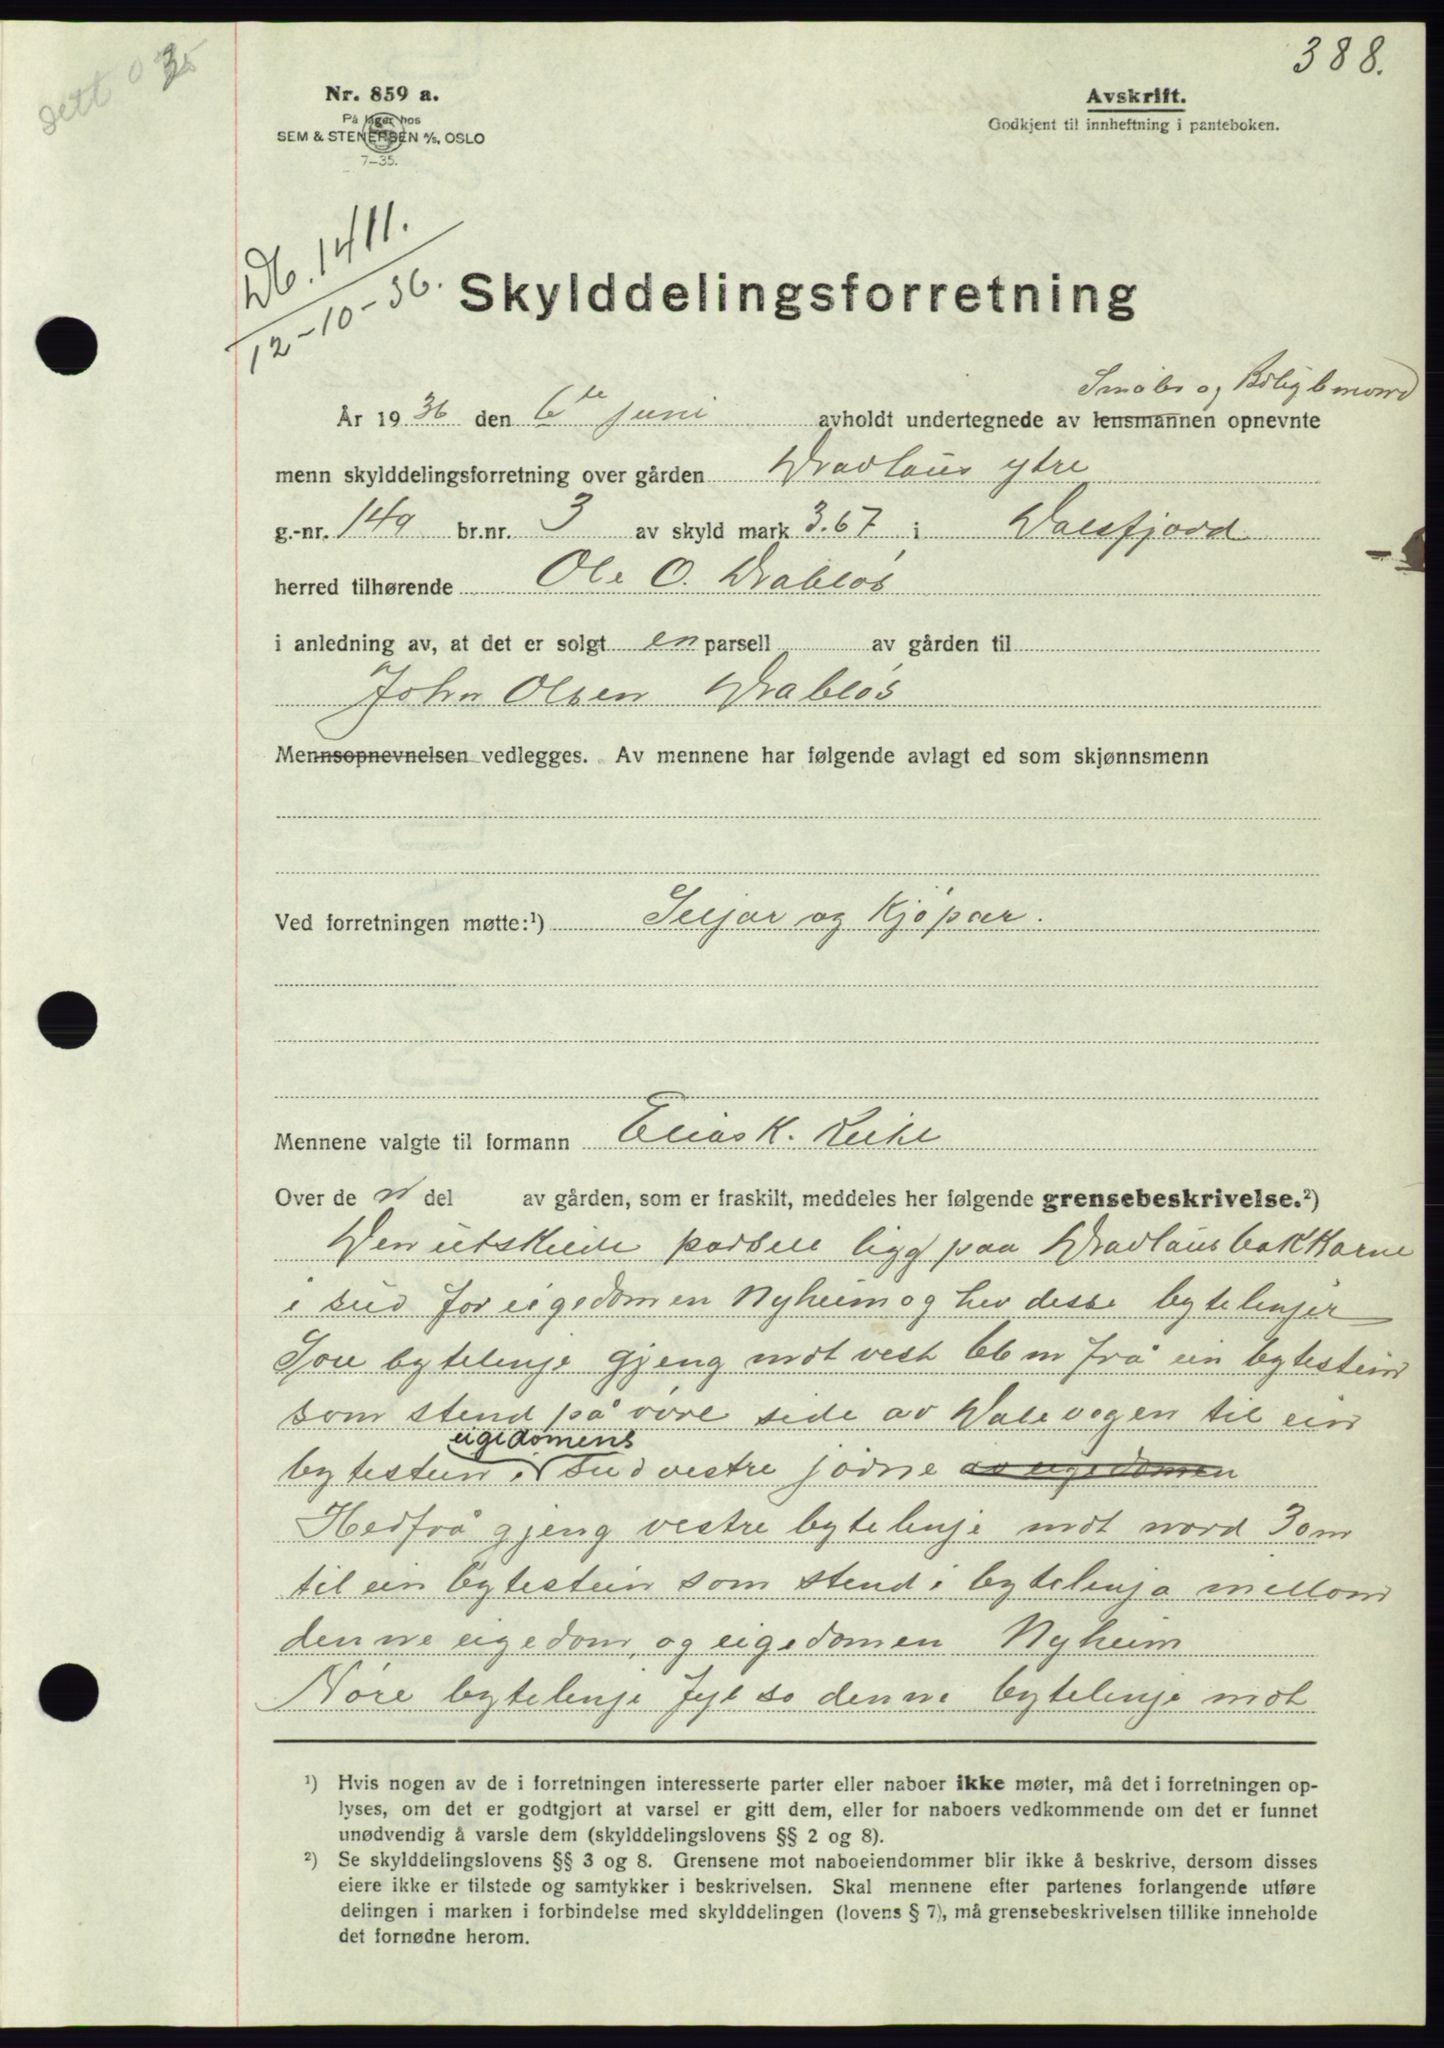 388.
Nr. 859 a.
På lager hos
SEM & STENERSEN A/S, OSLO
7—35.
Avskrift.
Godkjent til innheftning i panteboken.
Db. 1411.
12-10-36.
Skylddelingsforretning
Småbr og Boligb mannd
År 1936 den 6te juni avholdt undertegnede av lensmannen opnevnte
menn skylddelingsforretning over gården Dravlaus ytre
g.-nr. 149 br.nr. 3 av skyld mark 3.67 i Dalsfjord
herred tilhørende Ole O. Drabløs
i anledning av, at det er solgt en parsell av gården til
John Olsen Drabløs
Mennsopnevnelsen vedlegges. Av mennene har følgende avlagt ed som skjønnsmenn
Ved forretningen møtte:¹) Seljar og Kjøpar.
Mennene valgte til formann Elias K.
Over de n del av gården, som er fraskilt, meddeles her følgende grensebeskrivelse.²)
Den utskilde parsell ligg paa Dravlausbakkarne
i sud for eigedomen Nyheim og hev desse bytelinjer
Søre bytelinje gjeng mot vest 66 m frå ein bytestein
som stend på øvre side av Dalevegen til ein
eigedomens
bytestein i sudvestre jødne av eigedomen
Hedfrå gjeng vestre bytelinje mot nord 30 m
til ein bytestein som stend i bytelinja mellom
denne eigedom, og eigedomen Nyheim
Nøre bytelinje fyl so denne bytelinje mot
¹) Hvis nogen av de i forretningen interesserte parter eller naboer ikke møter, må det i forretningen op-
lyses, om det er godtgjort at varsel er gitt dem, eller for naboers vedkommende om det er funnet
unødvendig å varsle dem (skylddelingslovens §§ 2 og 8).
²) Se skylddelingslovens §§ 3 og 8. Grensene mot naboeiendommer blir ikke å beskrive, dersom disses
eiere ikke er tilstede og samtykker i beskrivelsen. Skal mennene efter partenes forlangende utføre
delingen i marken i forbindelse med skylddelingen (lovens § 7), må grensebeskrivelsen tillike inneholde
det fornødne herom.